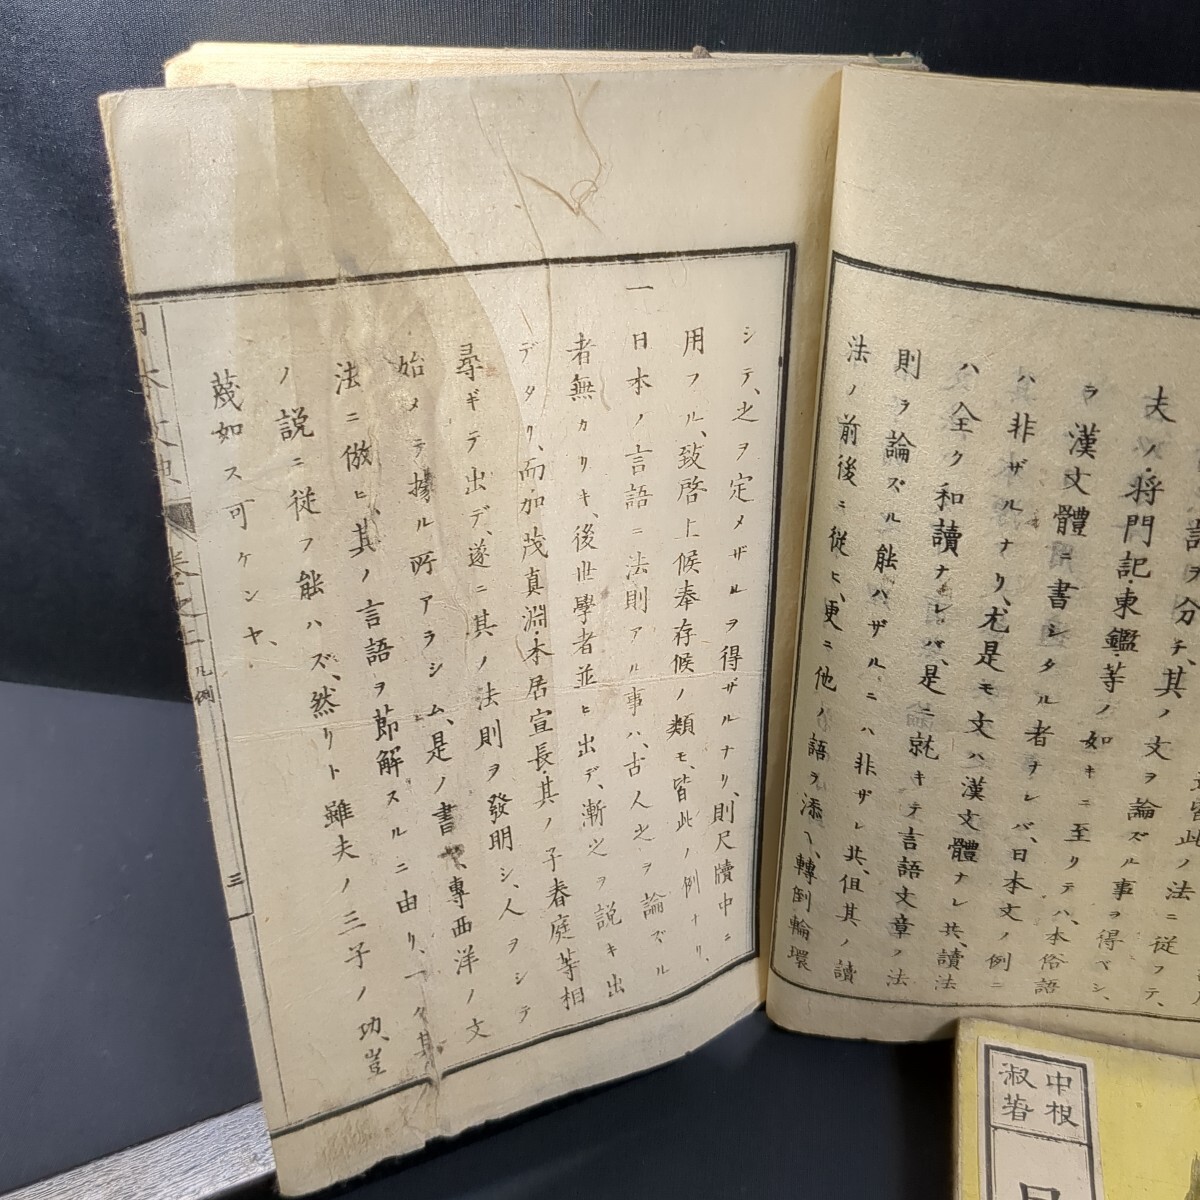 夫ノ將門記・東鑑・等ノ如キニ至リテハ、本俗語
ヲ漢文體ニ書シタル者ナレバ、日本文ノ例ニ
ハ非ザルナリ、尤是モ文ハ漢文體ナレ共、讀法
ハ全ク和讀ナレバ、是ニ就キテ言語文章ノ法
則ヲ論ズル能ハザルニハ非ザレ共、但其ノ讀
法ノ前後ニ從ヒ、更ニ他ノ語ヲ添ヘ、轉倒輪環
シテ、之ヲ定メザルヲ得ザルナリ、則尺牘中ニ
用フル、致啓上候奉存候ノ類モ、皆此ノ例ナリ、
一 日本ノ言語ニ法則アル事ハ、古人之ヲ論ズル
者無カリキ、後世學者並ビ出デ、漸之ヲ説キ出
デタリ、而加茂真淵・本居宣長・其ノ子春庭等相
尋ギテ出デ、遂ニ其ノ法則ヲ發明シ、人ヲシテ
始メテ據ル所アラシム、是ノ書ヤ、專西洋ノ文
法ニ倣ヒ、其ノ言語ヲ節解スルニ由リ、一々其
ノ説ニ從フ能ハズ、然リト雖夫ノ三子ノ功、豈
蔑如ス可ケンヤ、
日本文典
卷之上 凡例
三
中根
淑著
日